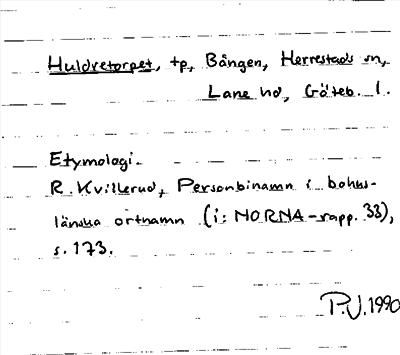 Huldretorpet, tp, Bången, Herrestads sn,
Lane hd, Göteb. l.
Etymologi.
R. Kvillerud, Personbinamn i bohus-
länska ortnamn (i: NORNA-rapp. 33),
s. 173.
P.U. 1990